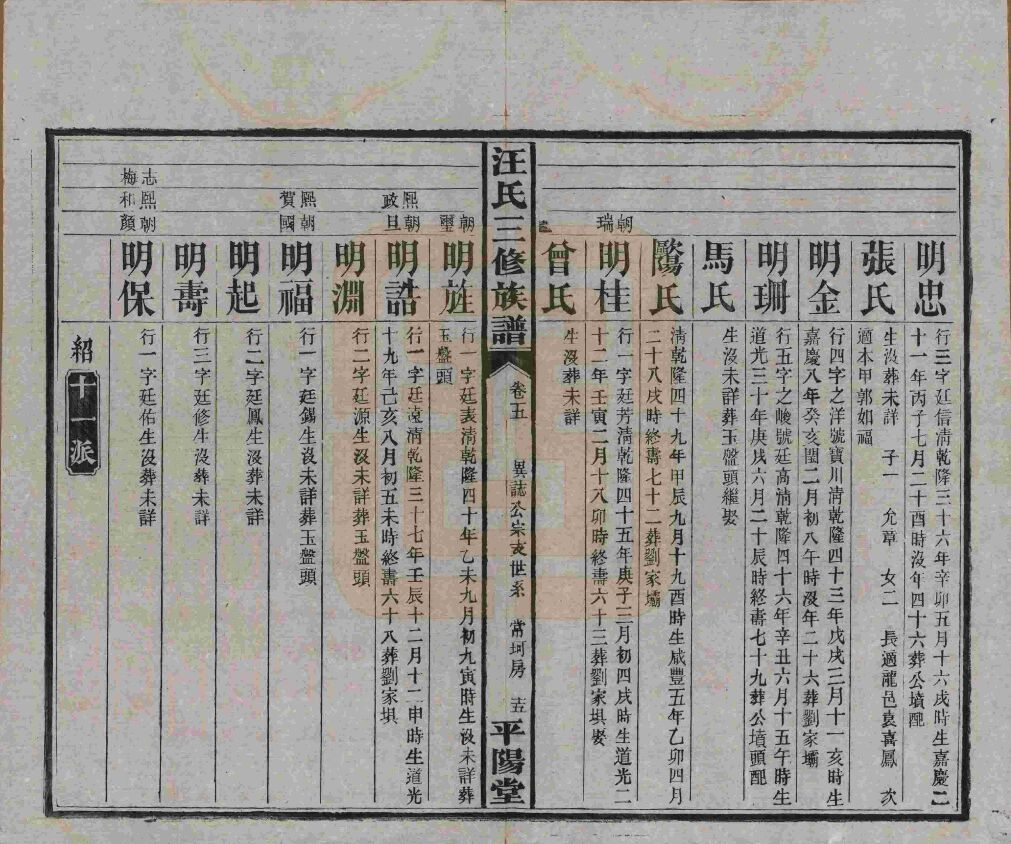 明忠
行三字廷信清乾隆三十六年辛卯五月十六戌時生嘉慶二
十一年丙子七月二十酉時沒年四十六葬公墳配
張氏
生沒葬未詳 子一 允章 女二 長適龍邑袁喜鳳 次
適本甲郭如福
明金
行四字之洋號寶川清乾隆四十三年戊戌三月十一亥時生
嘉慶八年癸亥閏二月初八午時沒年二十六葬劉家壩
明珊
行五字之峻號廷高清乾隆四十六年辛丑六月十五午時生
道光三十年庚戌六月二十辰時終壽七十九葬公墳頭配
馬氏
生沒未詳葬玉盤頭繼娶
歐陽氏
清乾隆四十九年甲辰九月十九酉時生咸豐五年乙卯四月
二十八戌時終壽七十二葬劉家壩
朝瑞
明桂
行一字廷芳清乾隆四十五年庚子三月初四戌時生道光二
十二年壬寅二月十八卯時終壽六十三葬劉家埧娶
曾氏
生沒葬未詳
汪氏三修族譜
卷五
異誌公崇支世系
常珂房
平陽堂
朝璽
明旌
行一字廷表清乾隆四十年乙未九月初九寅時生沒未詳葬
玉盤頭
熙政
朝旦
明誥
行一字廷遠清乾隆三十七年壬辰十二月十二申時生道光
十九年己亥八月初五未時終壽六十八葬劉家埧
明淵
行二字廷源生沒未詳葬玉盤頭
熙賀
朝國
明福
行一字廷錫生沒未詳葬玉盤頭
明起
行二字廷鳳生沒葬未詳
明壽
行三字廷修生沒葬未詳
志梅
熙和
朝顏
明保
行一字廷佑生沒葬未詳
紹
十一派